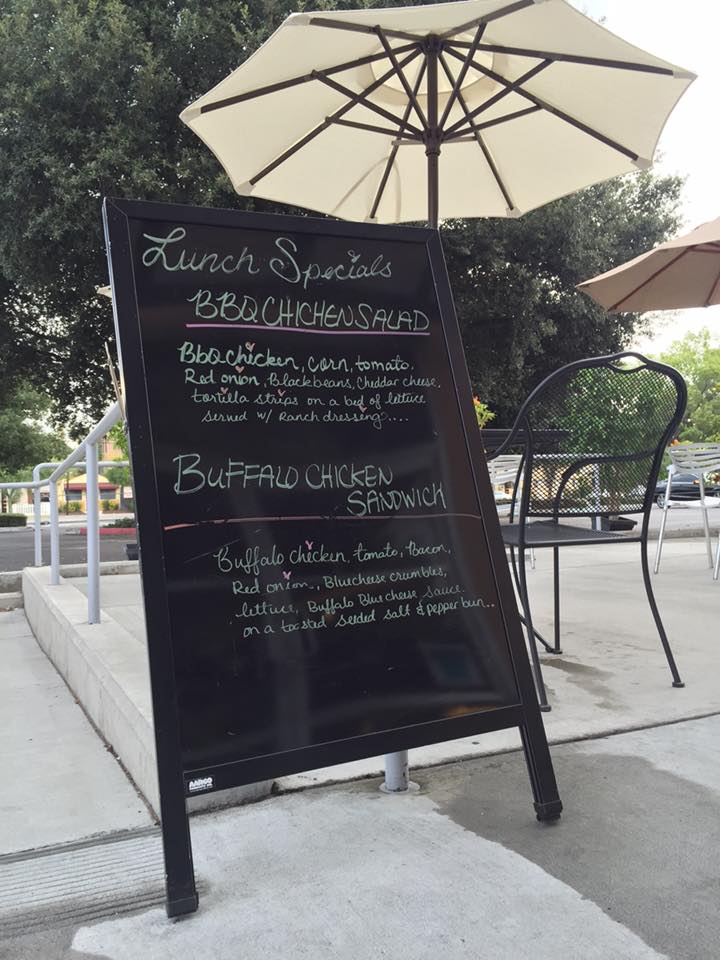 Lunch Specials
BBQ CHICHEN SALAD
BbQ chicken, corn, tomato.
Red onion, Black beans, Cheddar cheese,
tortilla strips on a bed of lettuce
served w/ Ranch dresseng....
BUFFALO CHICKEN
SANDWICK
Buffalo chicken, tomato, Bacon,
Red onion, Bluecheese crumbles,
lettuce, Buffalo Blue cheese sauce.
on a toasted seeded salt & pepper bun..
AARCO